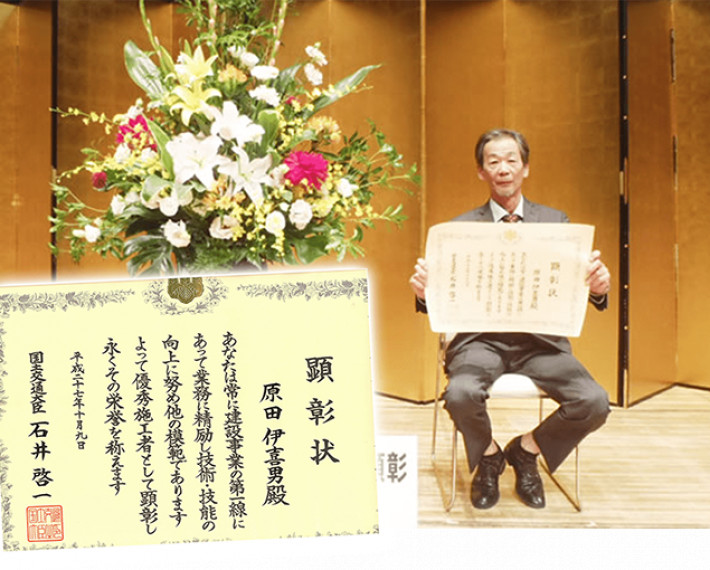 顕彰状
原田 伊喜男殿
あなたは常に建設事業の第一線に
あって業務に精励し技術・技能の
向上に努め他の模範であります
よって優秀施工者として顕彰し
永くその栄誉を称えます
平成二十七年十月九日
国土交通大臣 石井 啓一
顕彰状
原田 伊喜男殿
彰